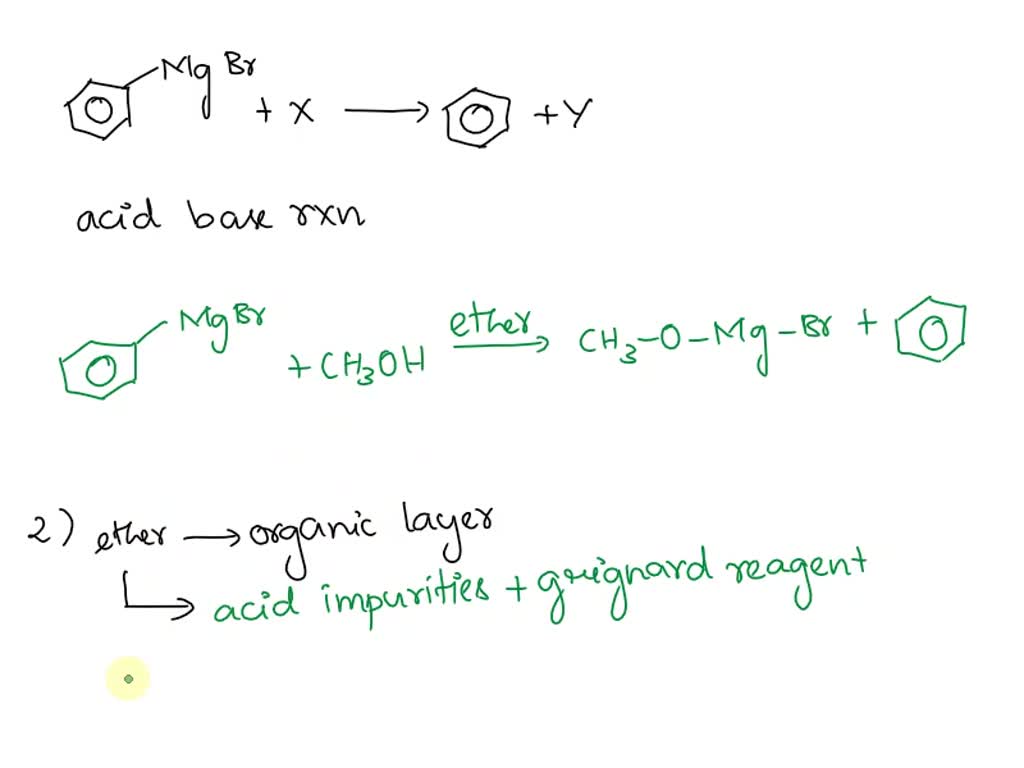 MgBr + X ⟶ + Y
acid base rxn
MgBr + CH₃OH ether ⟶ CH₃-O-Mg-Br +
2) ether ⟶ organic layer
acid impurities + grignard reagent